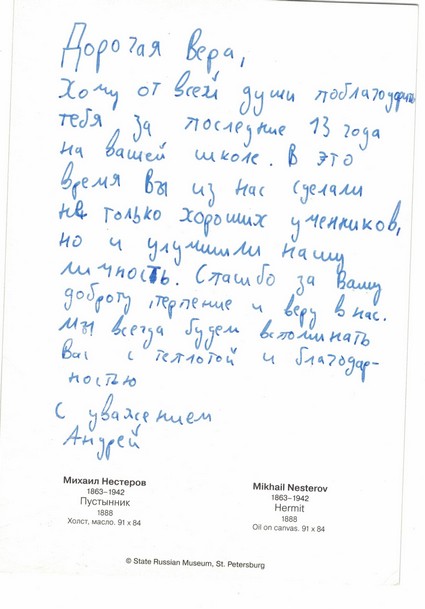 Дорогая Вера,
Хочу от всей души поблагодарить
тебя за последние 13 года
на вашей школе. В это
время вы из нас сделали
не только хороших ученников,
но и улучшили нашу
личность. Спасибо за Вашу
доброту, терпение и веру в нас.
Мы всегда будем вспоминать
Вас с теплотой и благодар-
ностью
С уважением
Андрей
Михаил Нестеров
1863–1942
Пустынник
1888
Холст, масло. 91 x 84
Mikhail Nesterov
1863–1942
Hermit
1888
Oil on canvas. 91 x 84
© State Russian Museum, St. Petersburg